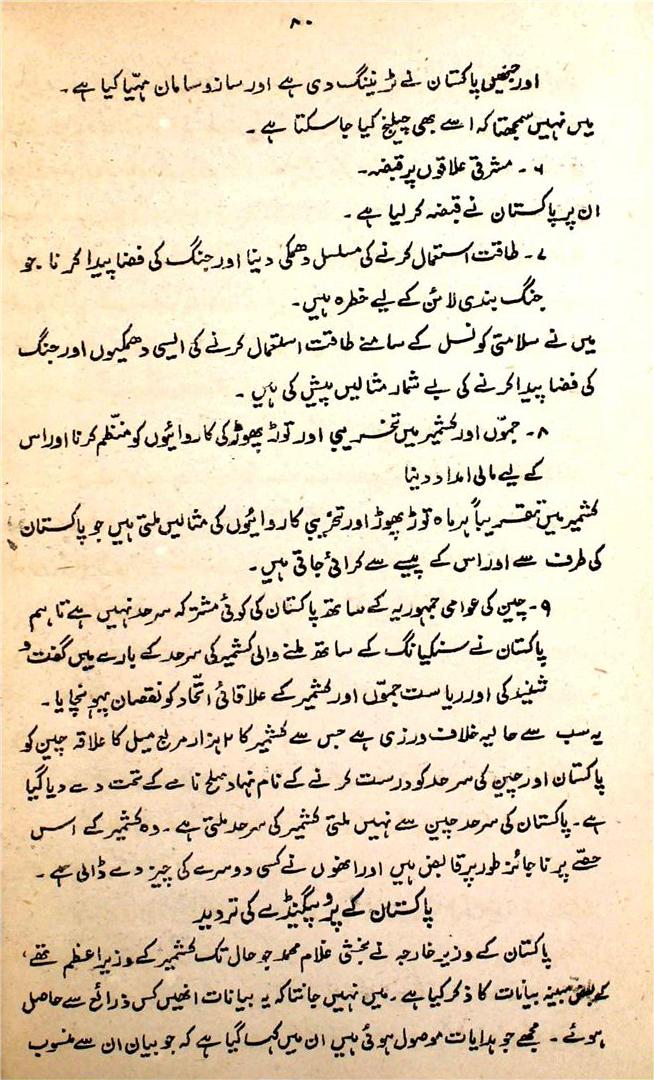 ۸۰
اور جنھیں پاکستان نے ٹریننگ دی ہے اور ساز و سامان مہیّا کیا ہے۔
میں نہیں سمجھتا کہ اسے بھی چیلنج کیا جا سکتا ہے۔
۶۔ مشرقی علاقوں پر قبضہ۔
ان پر پاکستان نے قبضہ کر لیا ہے۔
۷۔ طاقت استعمال کرنے کی مسلسل دھمکی دینا اور جنگ کی فضا پیدا کرنا۔ جو
جنگ بندی لائن کے لیے خطرہ ہیں۔
میں نے سلامتی کونسل کے سامنے طاقت استعمال کرنے کی ایسی دھمکیوں اور جنگ
کی فضا پیدا کرنے کی بے شمار مثالیں پیش کی ہیں۔
۸۔ جموّں اور کشمیر میں تخریبی اور توڑ پھوڑ کی کاروائیوں کو منظّم کرنا اور اس
کے لیے مالی امداد دینا
کشمیر میں تقریباً ہر ماہ توڑ پھوڑ اور تخریبی کاروائیوں کی مثالیں ملتی ہیں جو پاکستان
کی طرف سے اور اس کے پیسے سے کرائی جاتی ہیں۔
۹۔ چین کی عوامی جمہوریہ کے ساتھ پاکستان کی کوئی مشترکہ سرحد نہیں ہے تاہم
پاکستان نے سنکیانگ کے ساتھ ملنے والی کشمیر کی سرحد کے بارے میں گفت و
شنید کی اور ریاست جموّں اور کشمیر کے علاقائی اتّحاد کو نقصان پہونچایا۔
یہ سب سے حالیہ خلاف ورزی ہے جس سے کشمیر کا ۲ ہزار مربع میل کا علاقہ چین کو
پاکستان اور چین کی سرحد کو درست کرنے کے نام نہاد صلح نامے کے تحت دے دیا گیا
ہے۔ پاکستان کی سرحد چین سے نہیں ملتی کشمیر کی سرحد ملتی ہے۔ وہ کشمیر کے اس
حصّے پر ناجائز طور پر قابض ہیں اور انھوں نے کسی دوسرے کی چیز دے ڈالی ہے۔
پاکستان کے پروپیگنڈے کی تردید
پاکستان کے وزیر خارجہ نے بخشی غلام محمد جو حال تک کشمیر کے وزیر اعظم تھے،
کے بعض مبینہ بیانات کا ذکر کیا ہے۔ میں نہیں جانتا کہ یہ بیانات انھیں کس ذرائع سے حاصل
ہوئے۔ مجھے جو ہدایات موصول ہوئی ہیں ان میں کہا گیا ہے کہ جو بیان ان سے منسوب